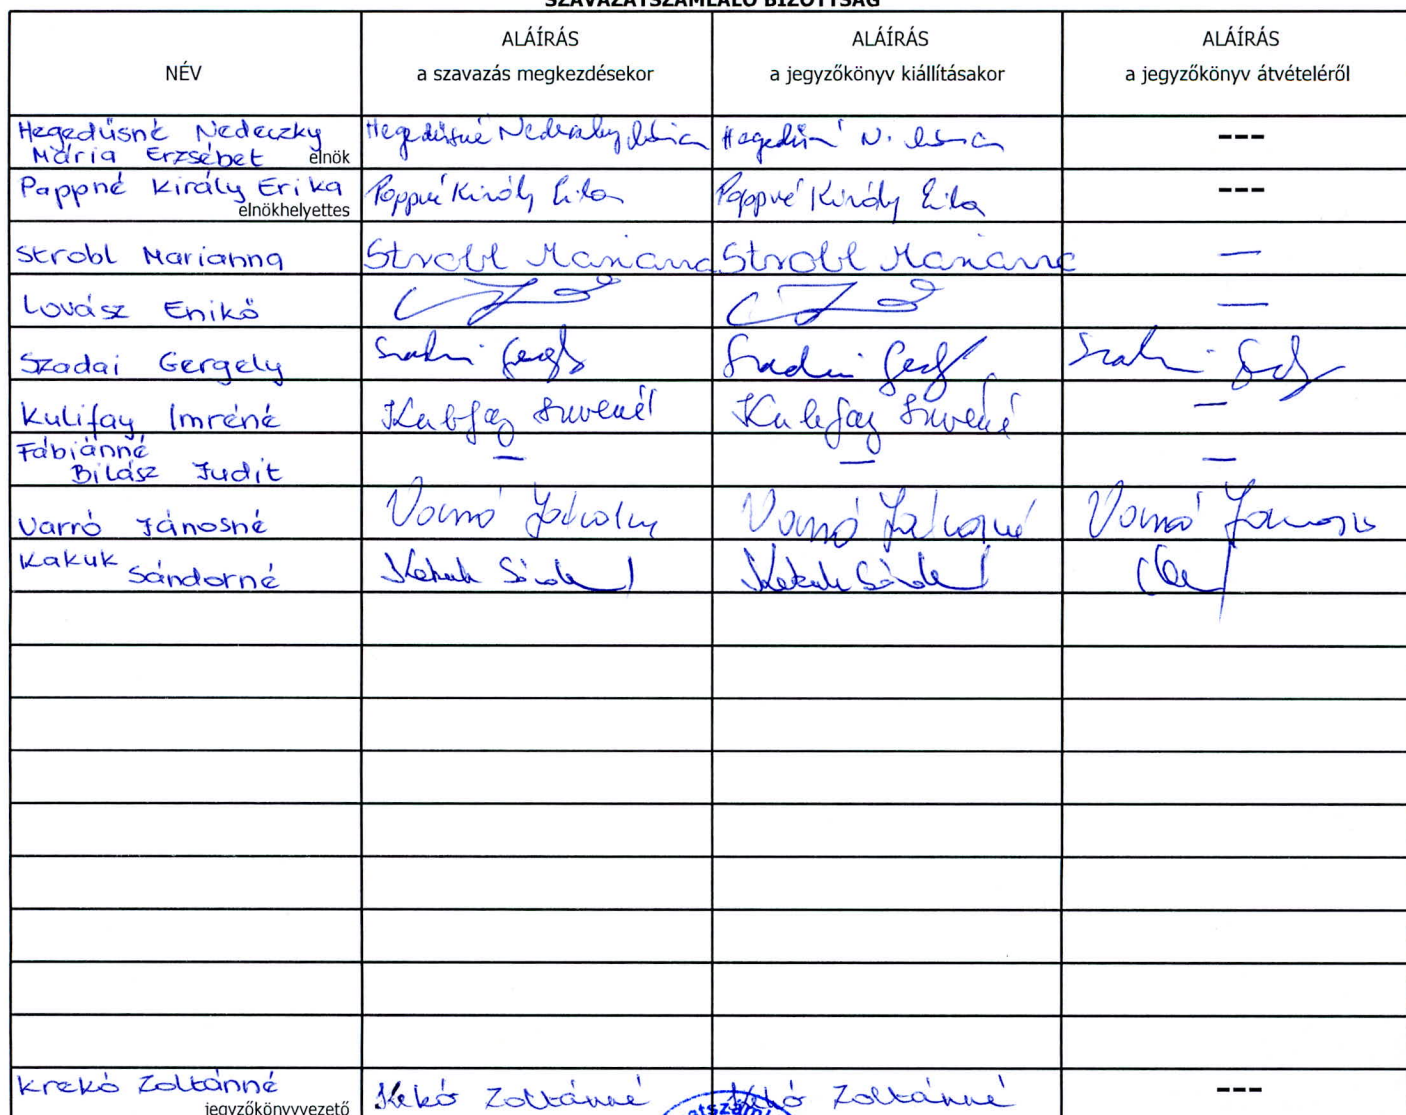 SZAVAZATSZÁMLÁLÓ BIZOTTSÁG
NÉV
ALÁÍRÁS
a szavazás megkezdésekor
ALÁÍRÁS
a jegyzőkönyv kiállításakor
ALÁÍRÁS
a jegyzőkönyv átvételéről
Hegedűsné Nedeczky
Mária Erzsébet elnök
Hegedűsné Nedeczky Mária
Hegedűsné N. Mária
---
Pappné Király Erika
elnökhelyettes
Pappné Király Erika
Pappné Király Erika
---
Strobl Marianna
Strobl Marianna
Strobl Marianna
—
Lovász Enikő
—
Szadai Gergely
Szadai Gergely
Szadai Gergely
Kulifay Imréné
Kulifay Imréné
Kulifay Imréné
—
Fábiánné
Bilász Judit
—
—
—
Varró Jánosné
Varró Jánosné
Varró Jánosné
Varró Jánosné
Kakuk
Sándorné
Kakuk Sándorné
Kakuk Sándorné
Krekó Zoltánné
jegyzőkönyvvezető
Krekó Zoltánné
Krekó Zoltánné
---